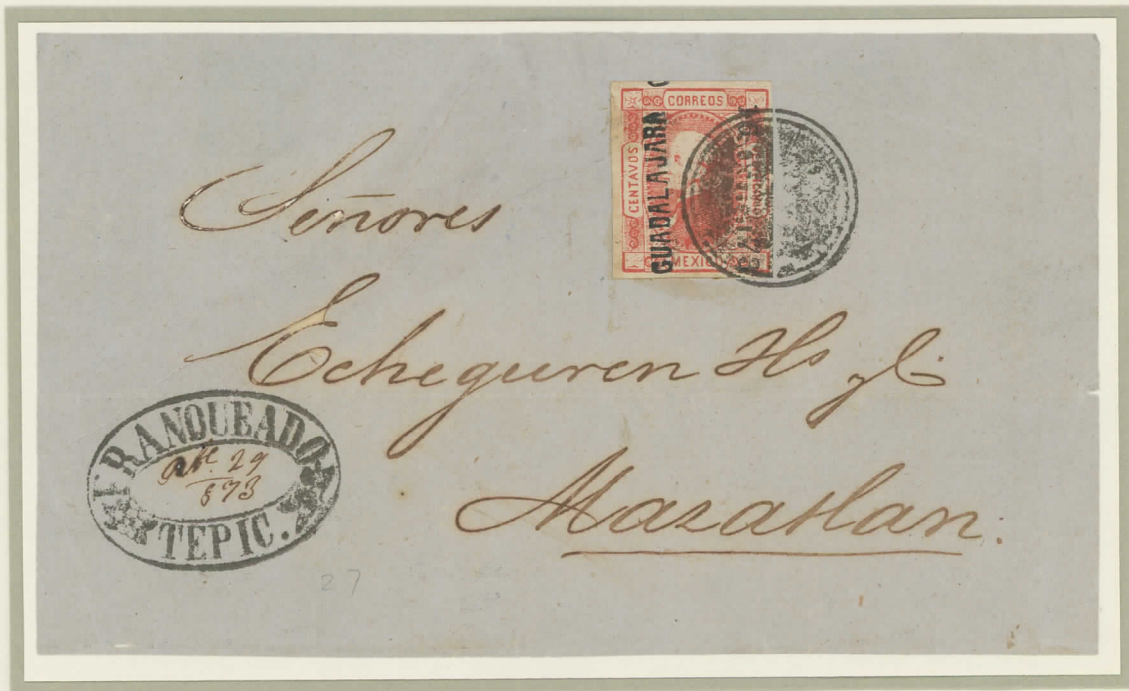 CORREOS
CENTAVOS
GUADALAJARA
MEXICO
Señores
Echeguren Hs y C
Mazatlan.
FRANQUEADO
29
873
TEPIC.
27